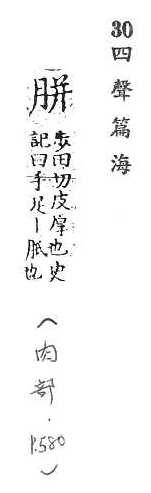 30四聲篇海
胼
步田切皮厚也史
記曰手足丨胝也
（肉部．P.580）